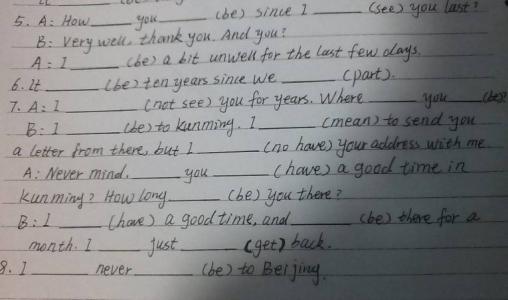 5. A: How ____ you ____ (be) since I ____ (see) you last?
B: Very well, thank you. And you?
A: I ____ (be) a bit unwell for the last few days.
6. It ____ (be) ten years since we ____ (part).
7. A: I ____ (not see) you for years. Where ____ you ____ (be)?
B: I ____ (be) to Kunming. I ____ (mean) to send you
a letter from there, but I ____ (no have) your address with me.
A: Never mind. ____ you ____ (have) a good time in
Kunming? How long ____ (be) you there?
B: I ____ (have) a good time, and ____ (be) there for a
month. I ____ just ____ (get) back.
8. I ____ never ____ (be) to Beijing.